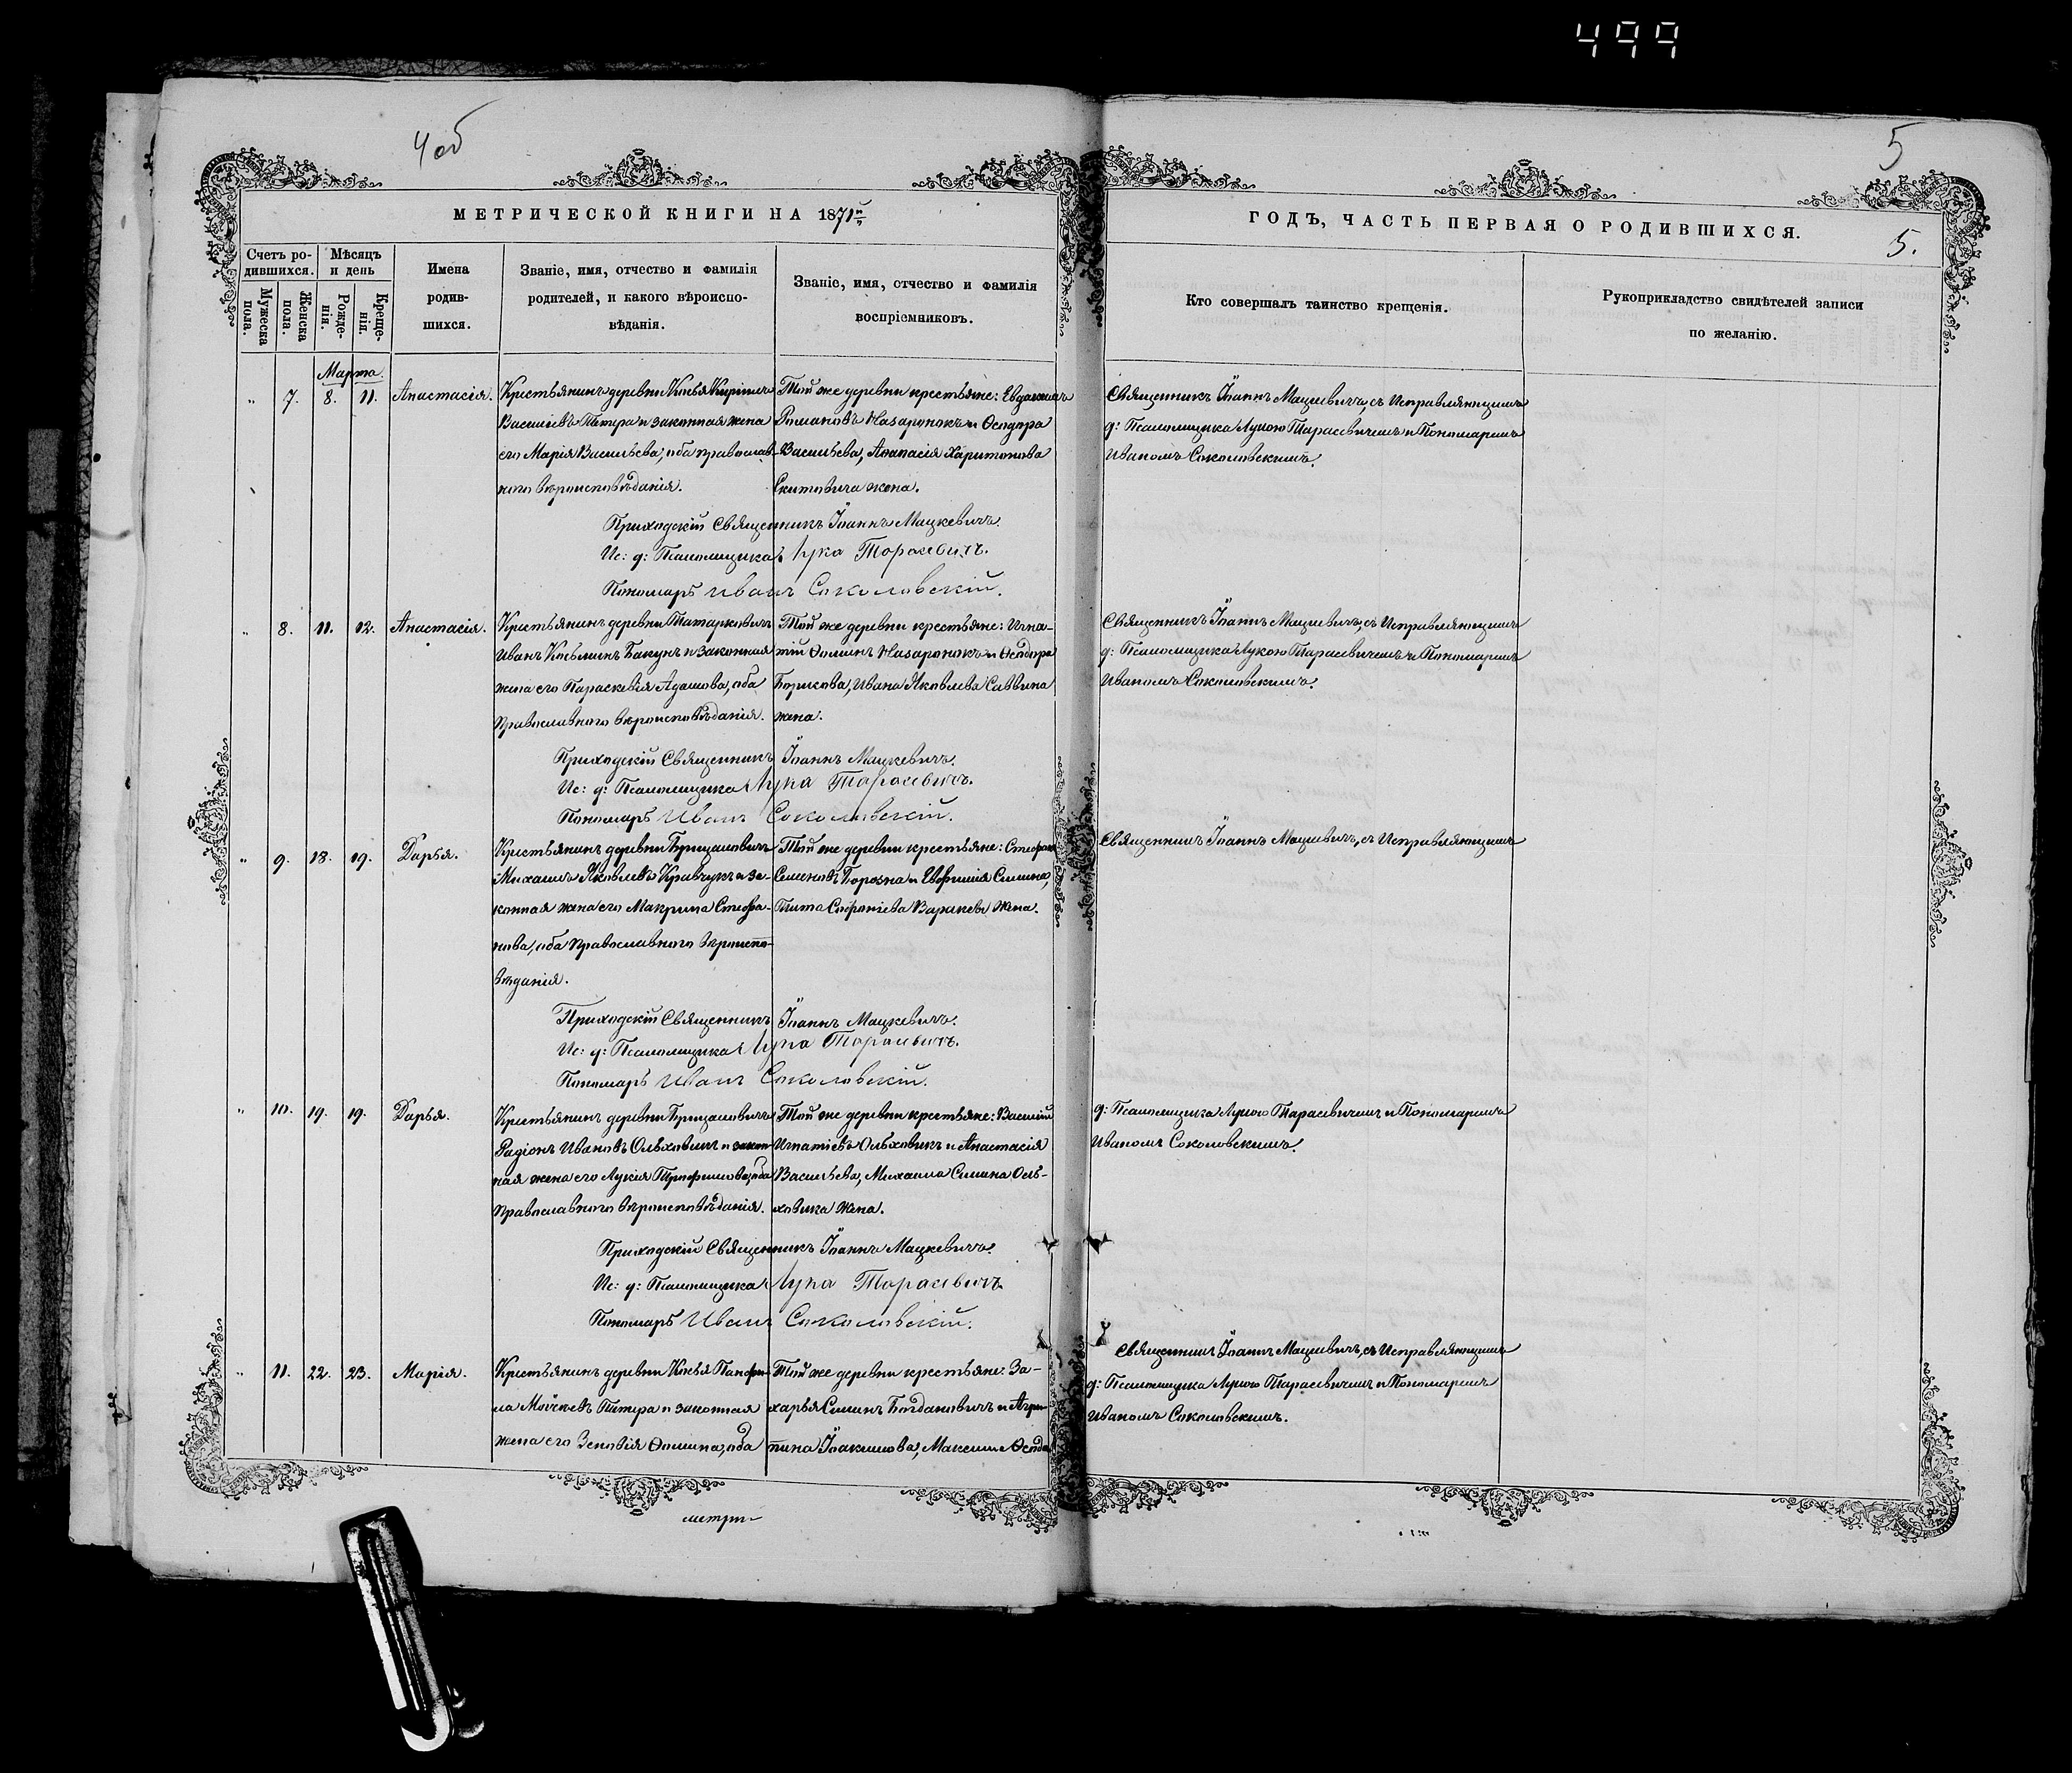 499
4 об
5
МЕТРИЧЕСКОЙ КНИГИ НА 1871й
ГОДЪ, ЧАСТЬ ПЕРВАЯ О РОДИВШИХСЯ.
5.
Счетъ ро-
дившихся.
Мужеска пола.
Женска пола.
Мѣсяцъ
и день
Рожде-
нія.
Креще-
нія.
Имена
родив-
шихся.
Званіе, имя, отчество и фамилія
родителей, и какого вѣроиспо-
вѣданія.
Званіе, имя, отчество и фамилія
воспріемниковъ.
Кто совершалъ таинство крещенія.
Рукоприкладство свидѣтелей записи
по желанію.
Марта.
„ 7. 8. 11. Анастасія.
Крестьянинъ деревни
Васильевъ Петера и законная жена
его Марія Васильева, оба православ-
ного вѣроисповѣданія.
Той же деревни крестьяне: Евдокимъ
Романовъ Назаронокъ и Ѳеодора
Васильева, Аѳанасія Харитонова
жена.
Священникъ Іоаннъ Мацкевичъ, съ Исправляющимъ
д: Псаломщика Лукою Тарасевичемъ и Пономаремъ
Иваномъ Соколовскимъ.
Приходскій Священникъ Іоаннъ Мацкевичъ.
Ис: д: Псаломщика Лука Тарасевичъ.
Пономарь Иванъ Соколовскій.
„ 8. 11. 12. Анастасія.
Крестьянинъ деревни Татарковичъ
Иванъ Бакунъ и законная
жена его Параскевія Адамова, оба
Православного вѣроисповѣданія.
Той же деревни крестьяне: Игна-
тій Ѳоминъ Назаронокъ и Ѳеодора
Борисова, Ивана Яковлева Саввина
жена.
Священникъ Іоаннъ Мацкевичъ, съ Исправляющимъ
д: Псаломщика Лукою Тарасевичемъ и Пономаремъ
Иваномъ Соколовскимъ.
Приходскій Священникъ Іоаннъ Мацкевичъ.
Ис: д: Псаломщика Лука Тарасевичъ.
Пономарь Иванъ Соколовскій.
„ 9. 18. 19. Дарья.
Крестьянинъ деревни Брицаловичъ
Михаилъ Яковлевъ Кравчукъ и за-
конная жена его Макрина Стефа-
нова, оба Православного вѣроиспо-
вѣданія.
Той же деревни крестьяне: Стефанъ
Семеновъ Борозна и Евфимія Симина,
Тита жена.
Священникъ Іоаннъ Мацкевичъ, съ Исправляющимъ
Приходскій Священникъ Іоаннъ Мацкевичъ.
Ис: д: Псаломщика Лука Тарасевичъ.
Пономарь Иванъ Соколовскій.
„ 10. 19. 19. Дарья.
Крестьянинъ деревни Брицаловичъ
Радіонъ Ивановъ Ольховикъ и закон-
ная жена его Лукія Трофимова, оба
Православного вѣроисповѣданія.
Той же деревни крестьяне: Василій
Игнатіевъ Ольховикъ и Анастасія
Васильева, Михаила Симина Оль-
ховика жена.
д: Псаломщика Лукою Тарасевичемъ и Пономаремъ
Иваномъ Соколовскимъ.
Приходскій Священникъ Іоаннъ Мацкевичъ.
Ис: д: Псаломщика Лука Тарасевичъ.
Пономарь Иванъ Соколовскій.
„ 11. 22. 23. Марія.
Крестьянинъ деревни Панфи-
ла Петера и законная
жена его Зеновія Ѳомина, оба
Той же деревни крестьяне: За-
харья Симинъ Богдановичъ и Агри-
пина Іоакимова, Максима
Священникъ Іоаннъ Мацкевичъ, съ Исправляющимъ
д: Псаломщика Лукою Тарасевичемъ и Пономаремъ
Иваномъ Соколовскимъ.
метри-